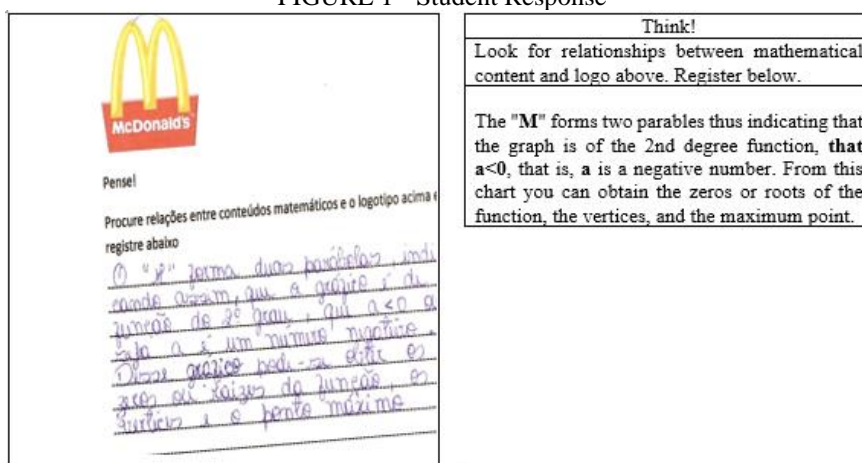 FIGURE 1 - Student Response
McDonald's
Pense!
Procure relações entre conteúdos matemáticos e o logotipo acima e
registre abaixo
O "M" forma duas parábolas, indi
cando assim, que o gráfico é da
função do 2º grau, que a<0 o
seja a é um número negativo.
Desse gráfico pode-se obter os
zeros ou raízes da função, os
vértices e o ponto máximo
Think!
Look for relationships between mathematical
content and logo above. Register below.
The "M" forms two parables thus indicating that
the graph is of the 2nd degree function, that
a<0, that is, a is a negative number. From this
chart you can obtain the zeros or roots of the
function, the vertices, and the maximum point.